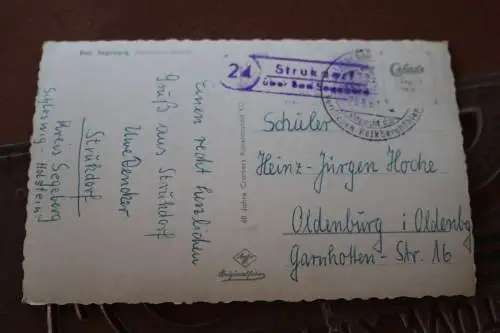 Bad Segeberg,
Einen recht herzlichen
Gruß aus Strukdorf
Uwe Dencker
Strukdorf
Kreis Segeberg
Schleswig
Holstein
24
Strukdorf
über Bad Segeberg
Kalkberghöhlen
Schüler
Heinz-Jürgen Hoche
Oldenburg i. Oldenbg
Garnholter-Str. 16
40 Jahre
Agfa